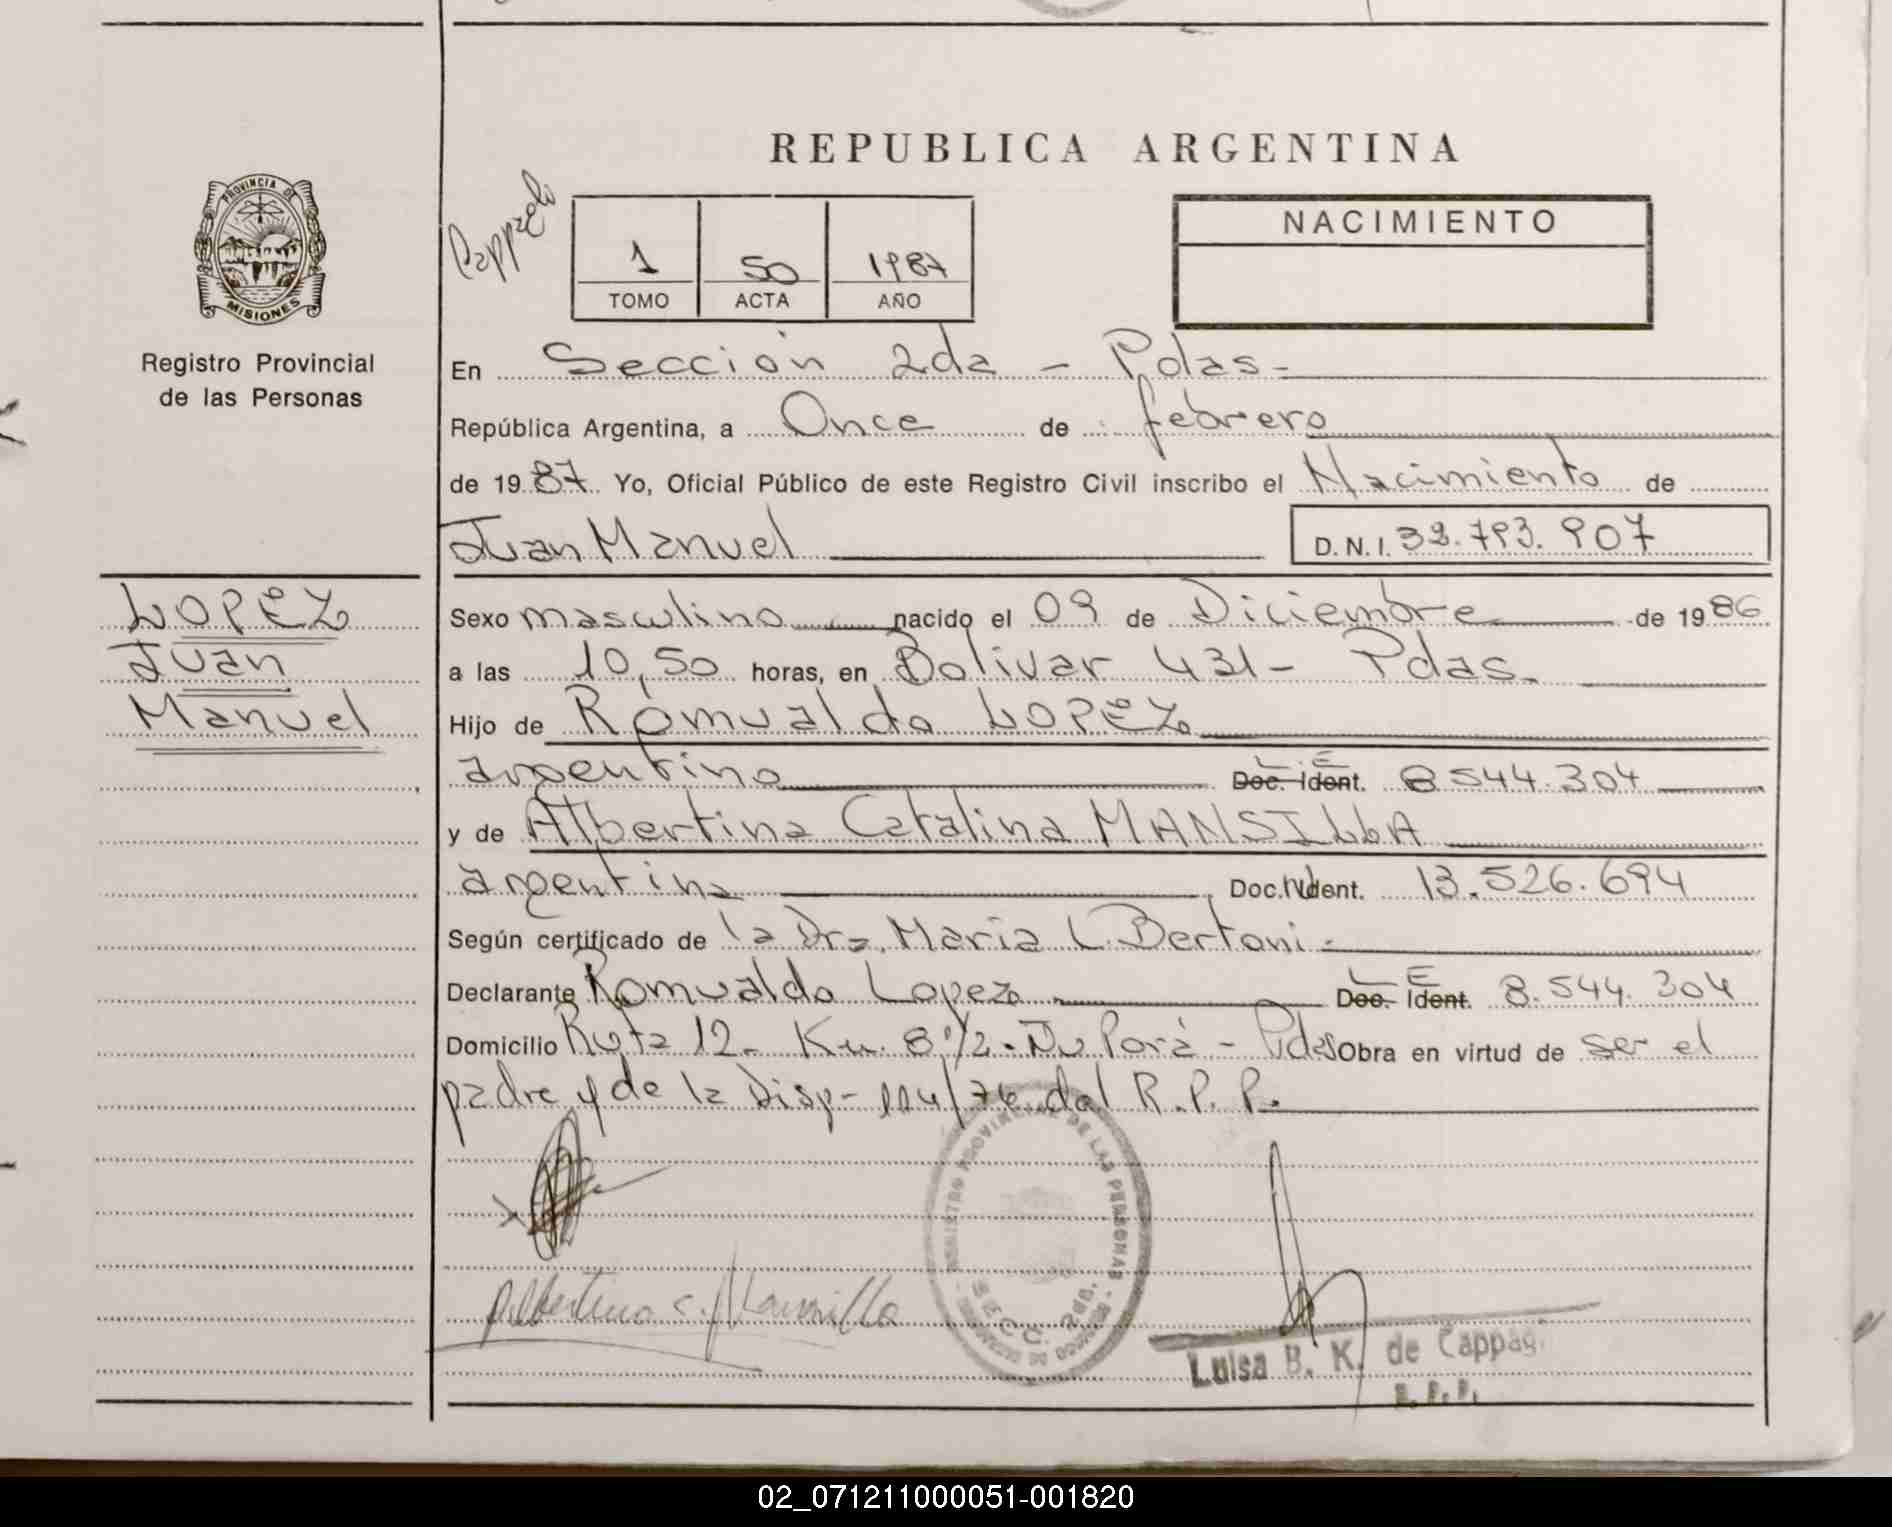 REPUBLICA ARGENTINA
PROVINCIA DE
MISIONES
Registro Provincial
de las Personas
1 50 1987
TOMO ACTA AÑO
NACIMIENTO
En Sección 2da - Pdas-
República Argentina, a Once de febrero
de 1987. Yo, Oficial Público de este Registro Civil inscribo el Nacimiento de
Juan Manuel D.N.I. 32.793.907
LOPEZ
Juan
Manuel
Sexo masculino nacido el 09 de Diciembre de 1986
a las 10,50 horas, en Bolivar 431- Pdas.
Hijo de Romualdo LOPEZ
argentino Doc. Ident. L.E 8.544.304
y de Albertina Catalina MANSILLA
argentina Doc. Ident. 13.526.694
Según certificado de la Dra. Maria L. Bertoni.-
Declarante Romualdo Lopez Doc. Ident. L E 8.544.304
Domicilio Ruta 12- Km. 8 1/2. Ñu Porá - Pdas Obra en virtud de ser el
padre y de la Disp- 114/76 del R.P.P.
REGISTRO PROVINCIAL DE LAS PERSONAS
SECC. 2da.
Albertina C. Mansilla
Luisa B. K. de
02_071211000051-001820